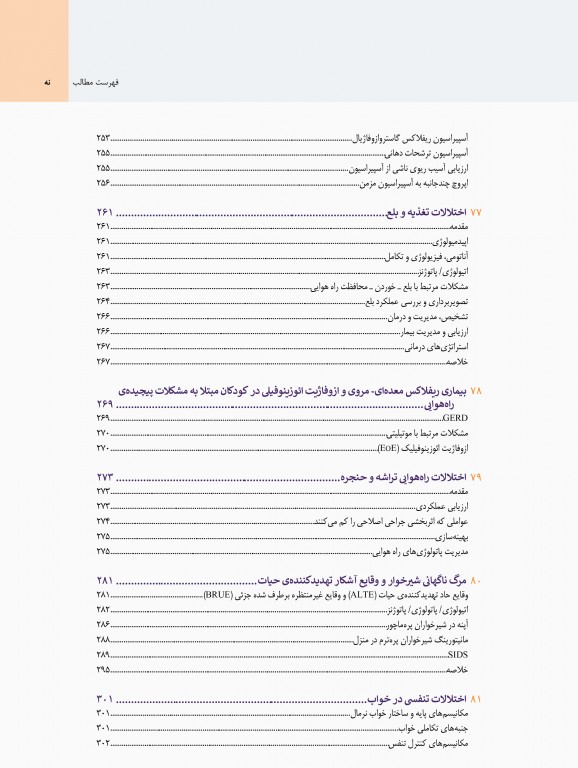 فهرست مطالب نه
آسپیراسیون ریفلاکس گاستروازوفاژیال ۲۵۳
آسپیراسیون ترشحات دهانی ۲۵۵
ارزیابی آسیب ریوی ناشی از آسپیراسیون ۲۵۵
اپروچ چندجانبه به آسپیراسیون مزمن ۲۵۶
۷۷ اختلالات تغذیه و بلع ۲۶۱
مقدمه ۲۶۱
اپیدمیولوژی ۲۶۱
آناتومی، فیزیولوژی و تکامل ۲۶۱
اتیولوژی/ پاتوژنز ۲۶۳
مشکلات مرتبط با بلع ـ خوردن ـ محافظت راه هوایی ۲۶۳
تصویربرداری و بررسی عملکرد بلع ۲۶۴
تشخیص، مدیریت و درمان ۲۶۶
ارزیابی و مدیریت بیمار ۲۶۶
استراتژی‌های درمانی ۲۶۷
خلاصه ۲۶۷
۷۸ بیماری ریفلاکس معده‌ای- مروی و ازوفاژیت ائوزینوفیلی در کودکان مبتلا به مشکلات پیچیده‌ی
راه‌هوایی ۲۶۹
GERD ۲۶۹
مشکلات مرتبط با موتیلیتی ۲۷۰
ازوفاژیت ائوزینوفیلیک (EoE) ۲۷۰
۷۹ اختلالات راه‌هوایی تراشه و حنجره ۲۷۳
مقدمه ۲۷۳
ارزیابی عملکردی ۲۷۳
عواملی که اثربخشی جراحی اصلاحی را کم می‌کنند ۲۷۴
بهینه‌سازی ۲۷۵
مدیریت پاتولوژی‌های راه هوایی ۲۷۵
۸۰ مرگ ناگهانی شیرخوار و وقایع آشکار تهدیدکننده‌ی حیات ۲۸۱
وقایع حاد تهدیدکننده‌ی حیات (ALTE) و وقایع غیرمنتظره برطرف شده جزئی (BRUE) ۲۸۱
اتیولوژی/ پاتولوژی/ پاتوژنز ۲۸۲
آپنه در شیرخواران پره‌ماچور ۲۸۶
مانیتورینگ شیرخواران پره‌ترم در منزل ۲۸۸
SIDS ۲۸۹
خلاصه ۲۹۵
۸۱ اختلالات تنفسی در خواب ۳۰۱
مکانیسم‌های پایه و ساختار خواب نرمال ۳۰۱
جنبه‌های تکاملی خواب ۳۰۱
مکانیسم‌های کنترل تنفس ۳۰۲